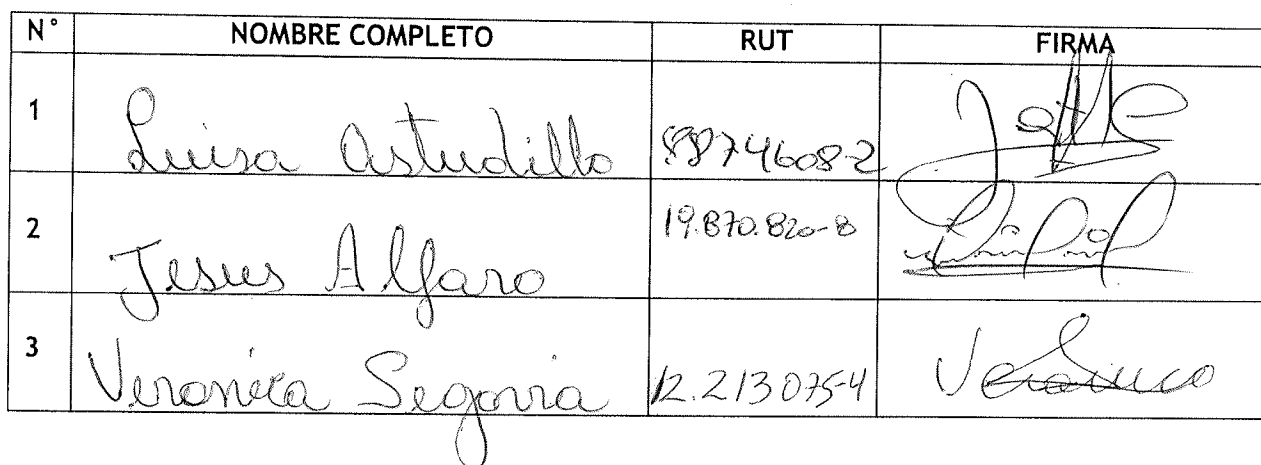 N° NOMBRE COMPLETO RUT FIRMA
1 Luisa Astudillo
2 Jesus Alfaro 19.870.820-8
3 Veronica Segovia 12.213075-4